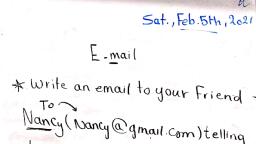 Sat., Feb. 5th, 2021
E-mail
* Write an email to your Friend -
To
Nancy (Nancy@gmail.com) telling